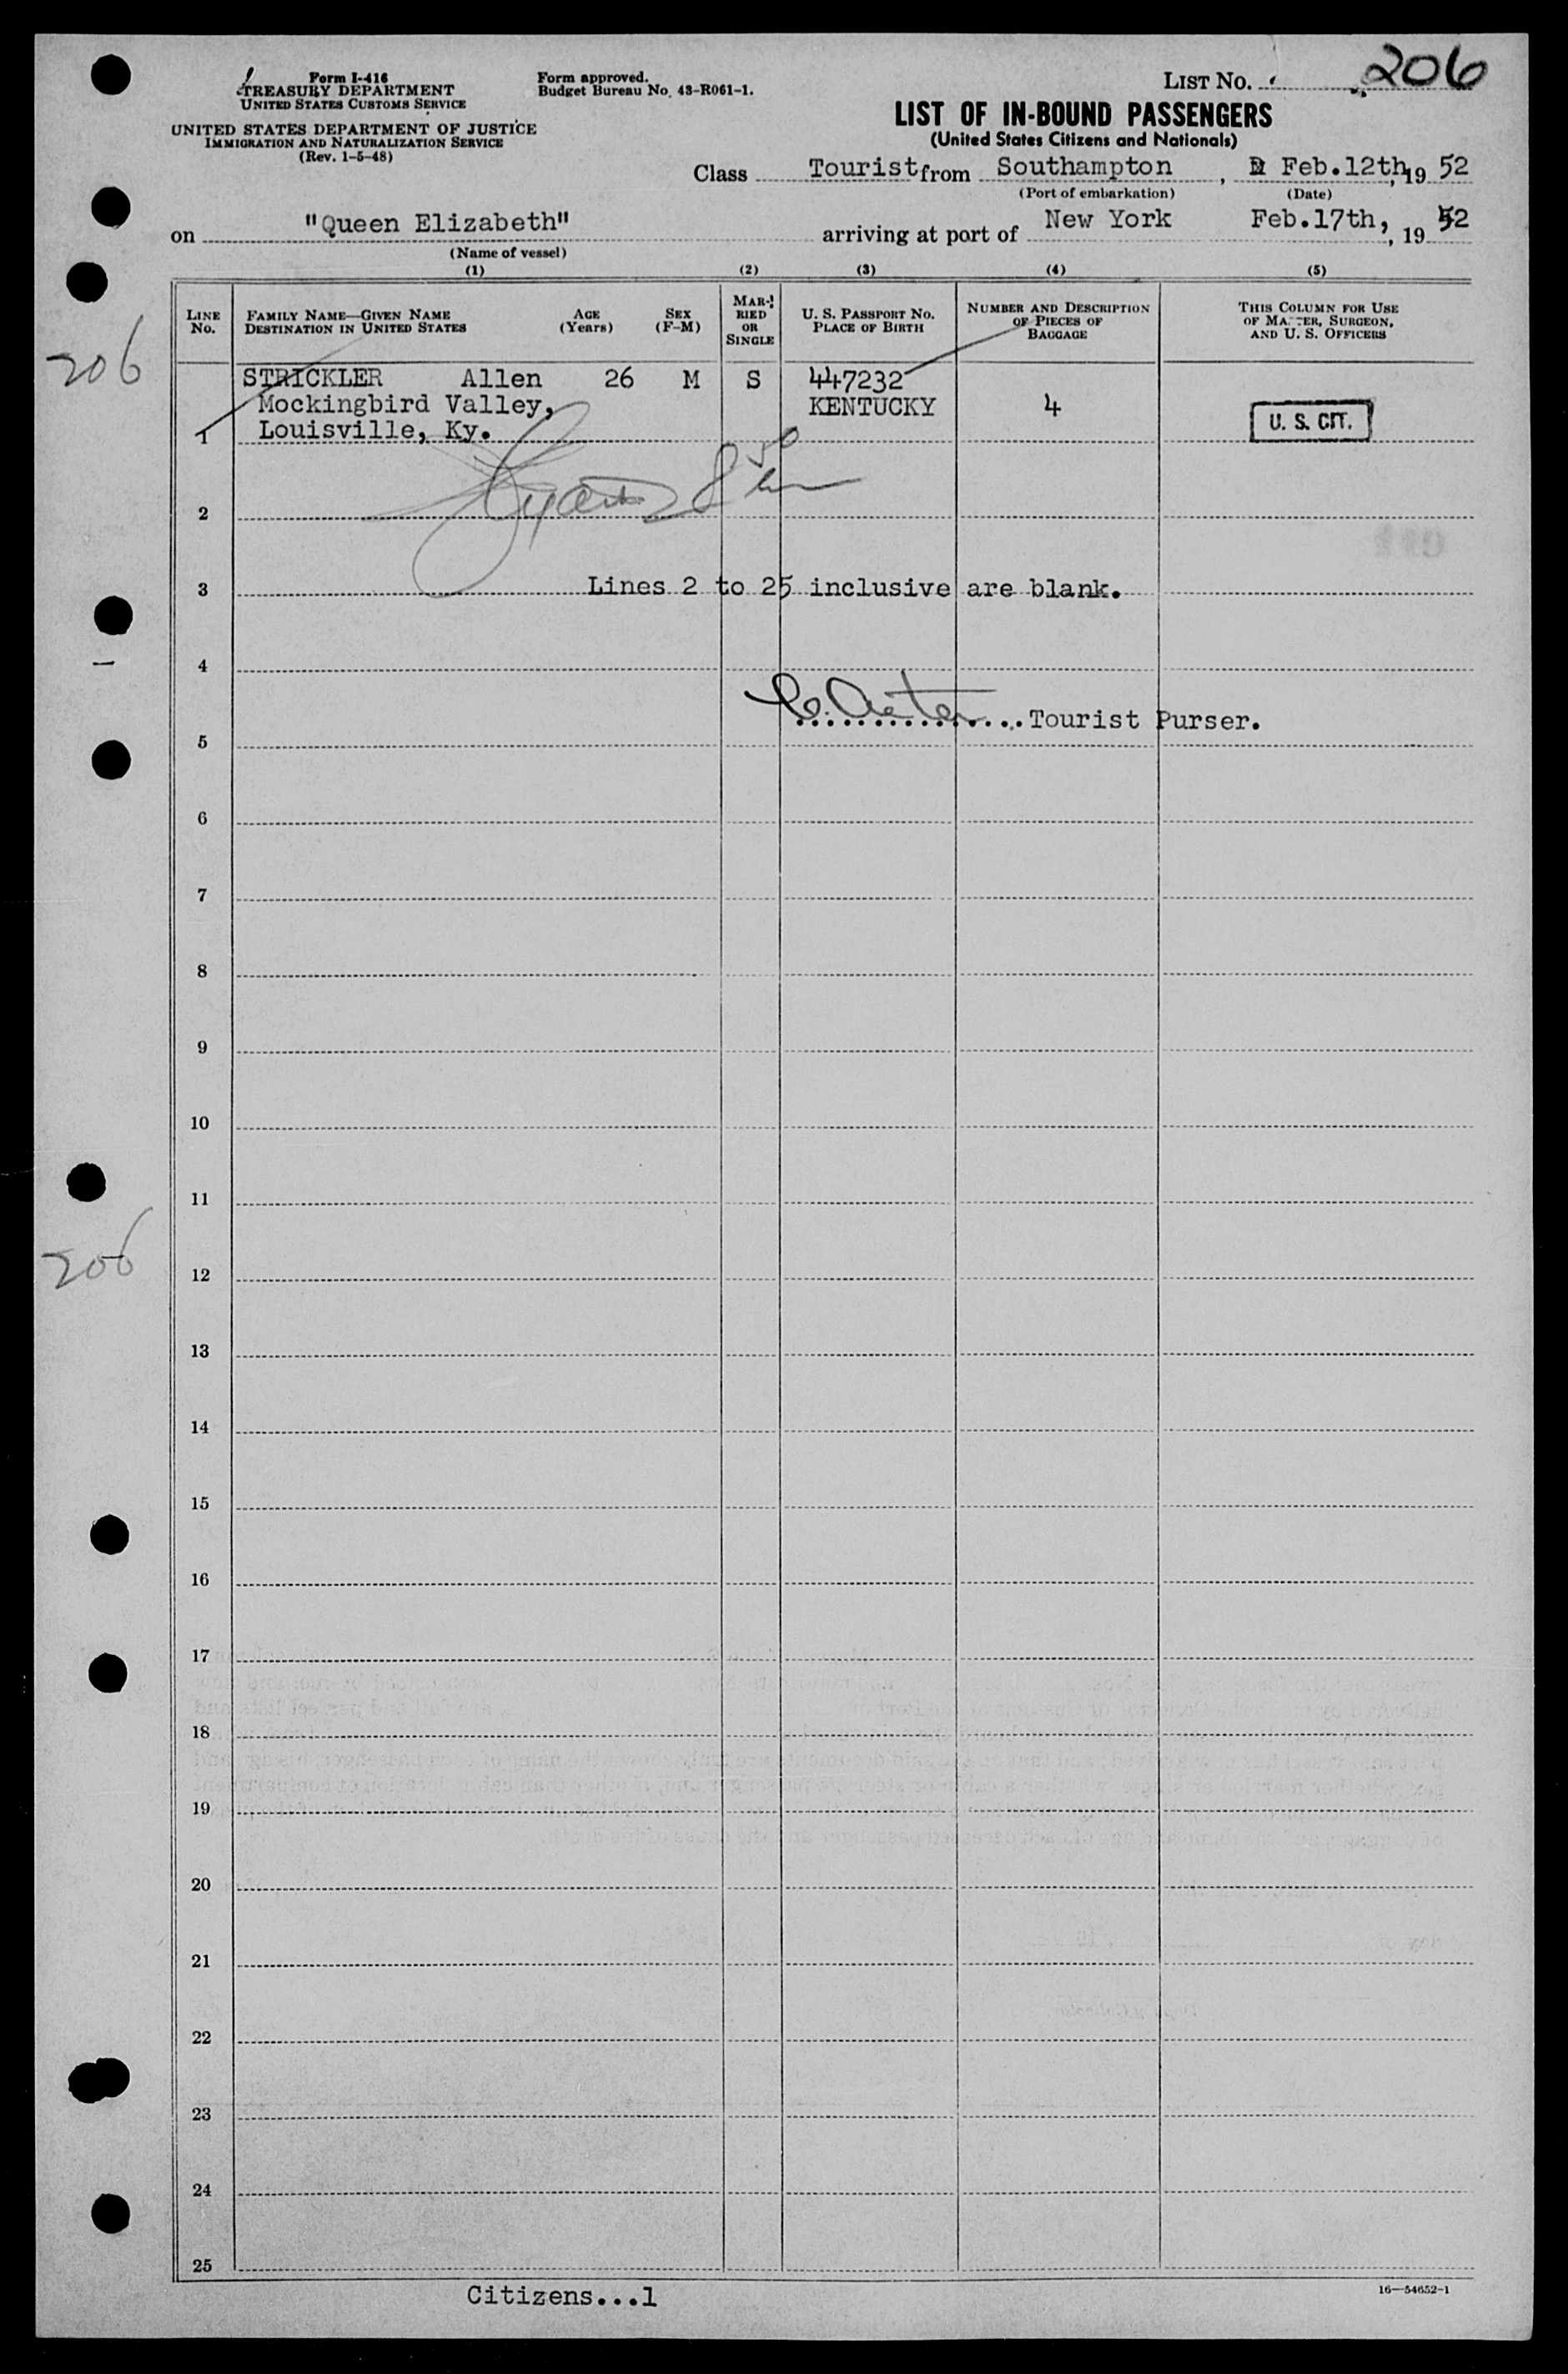 Form I-416
TREASURY DEPARTMENT
UNITED STATES CUSTOMS SERVICE
UNITED STATES DEPARTMENT OF JUSTICE
IMMIGRATION AND NATURALIZATION SERVICE
(Rev. 1-5-48)
Form approved.
Budget Bureau No. 43-R061-1.
LIST No. 206
LIST OF IN-BOUND PASSENGERS
(United States Citizens and Nationals)
Class Tourist from Southampton, Feb.12th, 19 52
(Port of embarkation) (Date)
on "Queen Elizabeth" arriving at port of New York Feb.17th, 19 52
(Name of vessel)
(1) (2) (3) (4) (5)
LINE No. FAMILY NAME—GIVEN NAME DESTINATION IN UNITED STATES AGE (Years) SEX (F-M) MARRIED OR SINGLE U. S. PASSPORT No. PLACE OF BIRTH NUMBER AND DESCRIPTION OF PIECES OF BAGGAGE THIS COLUMN FOR USE OF MASTER, SURGEON, AND U. S. OFFICERS
206
STRICKLER Allen 26 M S 447232
Mockingbird Valley, KENTUCKY 4 U. S. CIT.
1 Louisville, Ky.
2
3 Lines 2 to 25 inclusive are blank.
4
Tourist Purser.
5
6
7
8
9
10
11
206
12
13
14
15
16
17
18
19
20
21
22
23
24
25
Citizens...1
16—54652-1